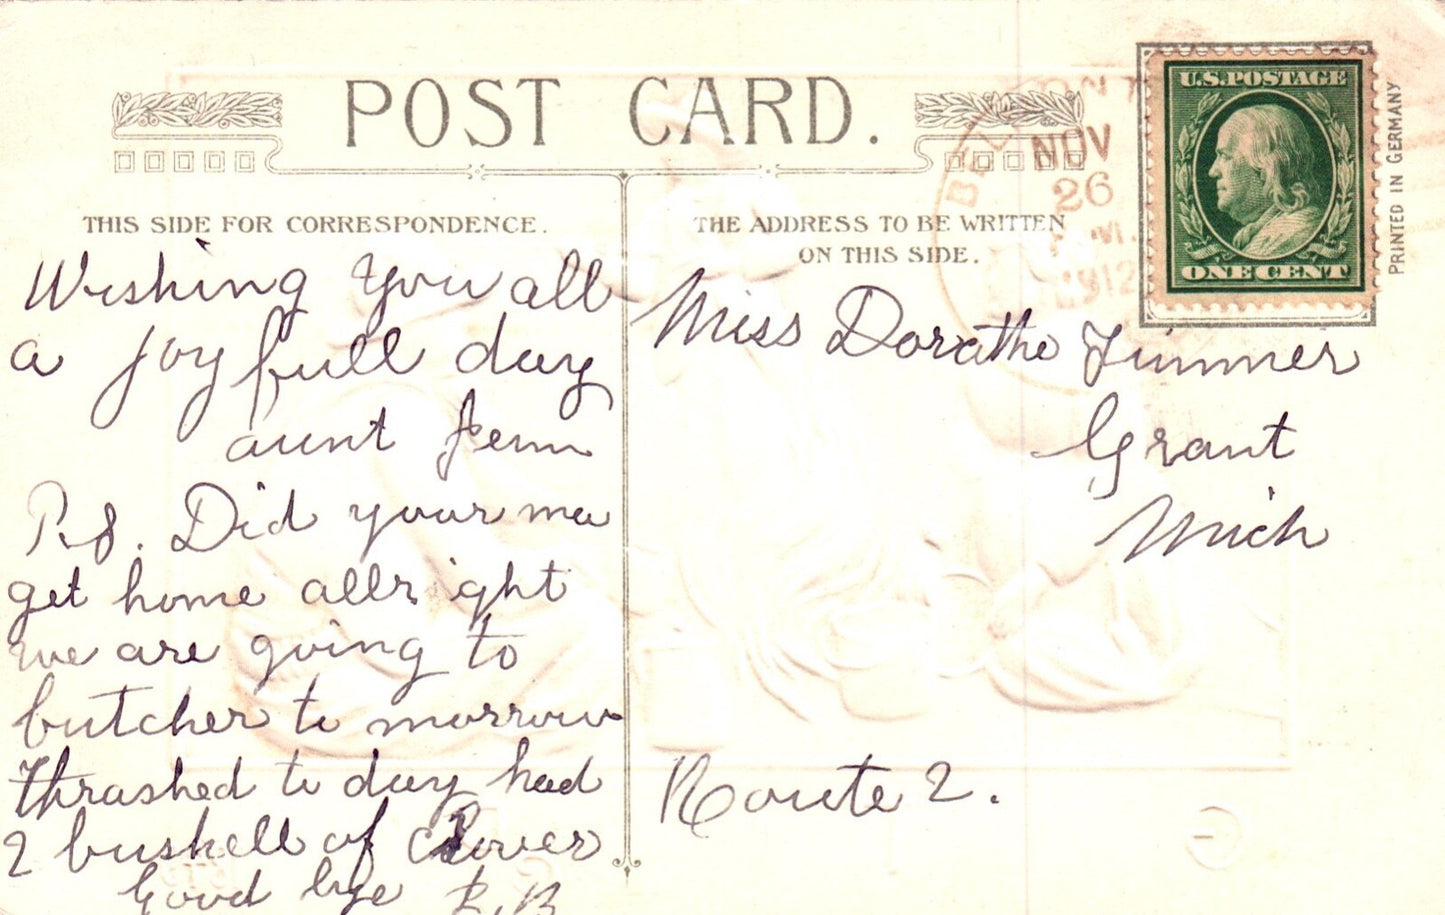 POST CARD.
THIS SIDE FOR CORRESPONDENCE.
Wishing you all
a joyfull day
aunt Jenn
P.S. Did your ma
get home allright
we are going to
butcher to morrow
Thrashed to day had
2 bushell of Clover
Good bye
THE ADDRESS TO BE WRITTEN
ON THIS SIDE.
NOV
26
1912
U.S. POSTAGE
ONE CENT
PRINTED IN GERMANY
Miss Dorathe Timmer
Grant
Mich
Route 2.